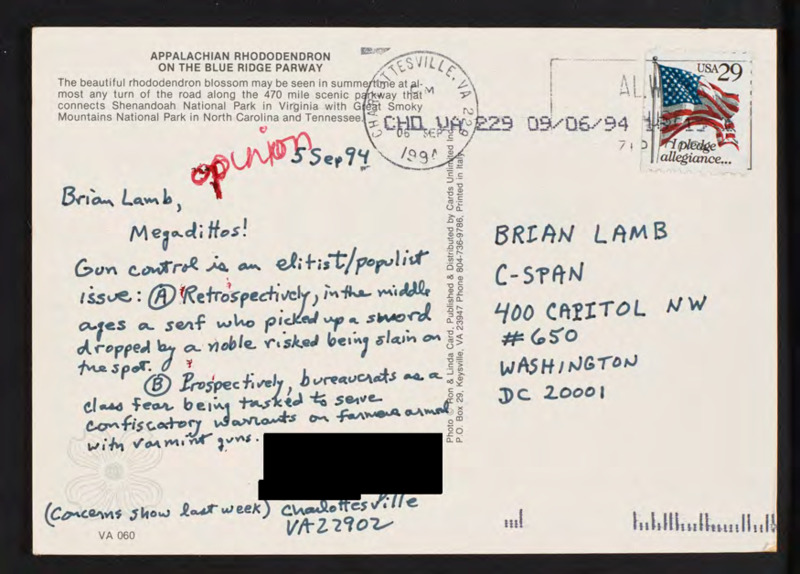 APPALACHIAN RHODODENDRON
ON THE BLUE RIDGE PARWAY
The beautiful rhododendron blossom may be seen in summertime at al-
most any turn of the road along the 470 mile scenic parkway that
connects Shenandoah National Park in Virginia with Great Smoky
Mountains National Park in North Carolina and Tennessee.
opinion
5 Sep 94
Brian Lamb,
Megadittos!
Gun control is an elitist/populist
issue: (A) Retrospectively, in the middle
ages a serf who picked up a sword
dropped by a noble risked being slain on
the spot.
(B) Prospectively, bureaucrats as a
class fear being tasked to serve
confiscatory warrants on farmers armed
with varmint guns.
(Concerns show last week)
Charlottesville
VA 22902
VA 060
Photo © Ron & Linda Card, Published & Distributed by Cards Unlimited Inc.
P.O. Box 29, Keysville, VA 23947 Phone 804-736-9786, Printed in Italy
CHARLOTTESVILLE, VA 229
PM
06 SEP
1994
CHO VA 229 09/06/94
USA 29
I pledge
allegiance...
BRIAN LAMB
C-SPAN
400 CAPITOL NW
#650
WASHINGTON
DC 20001